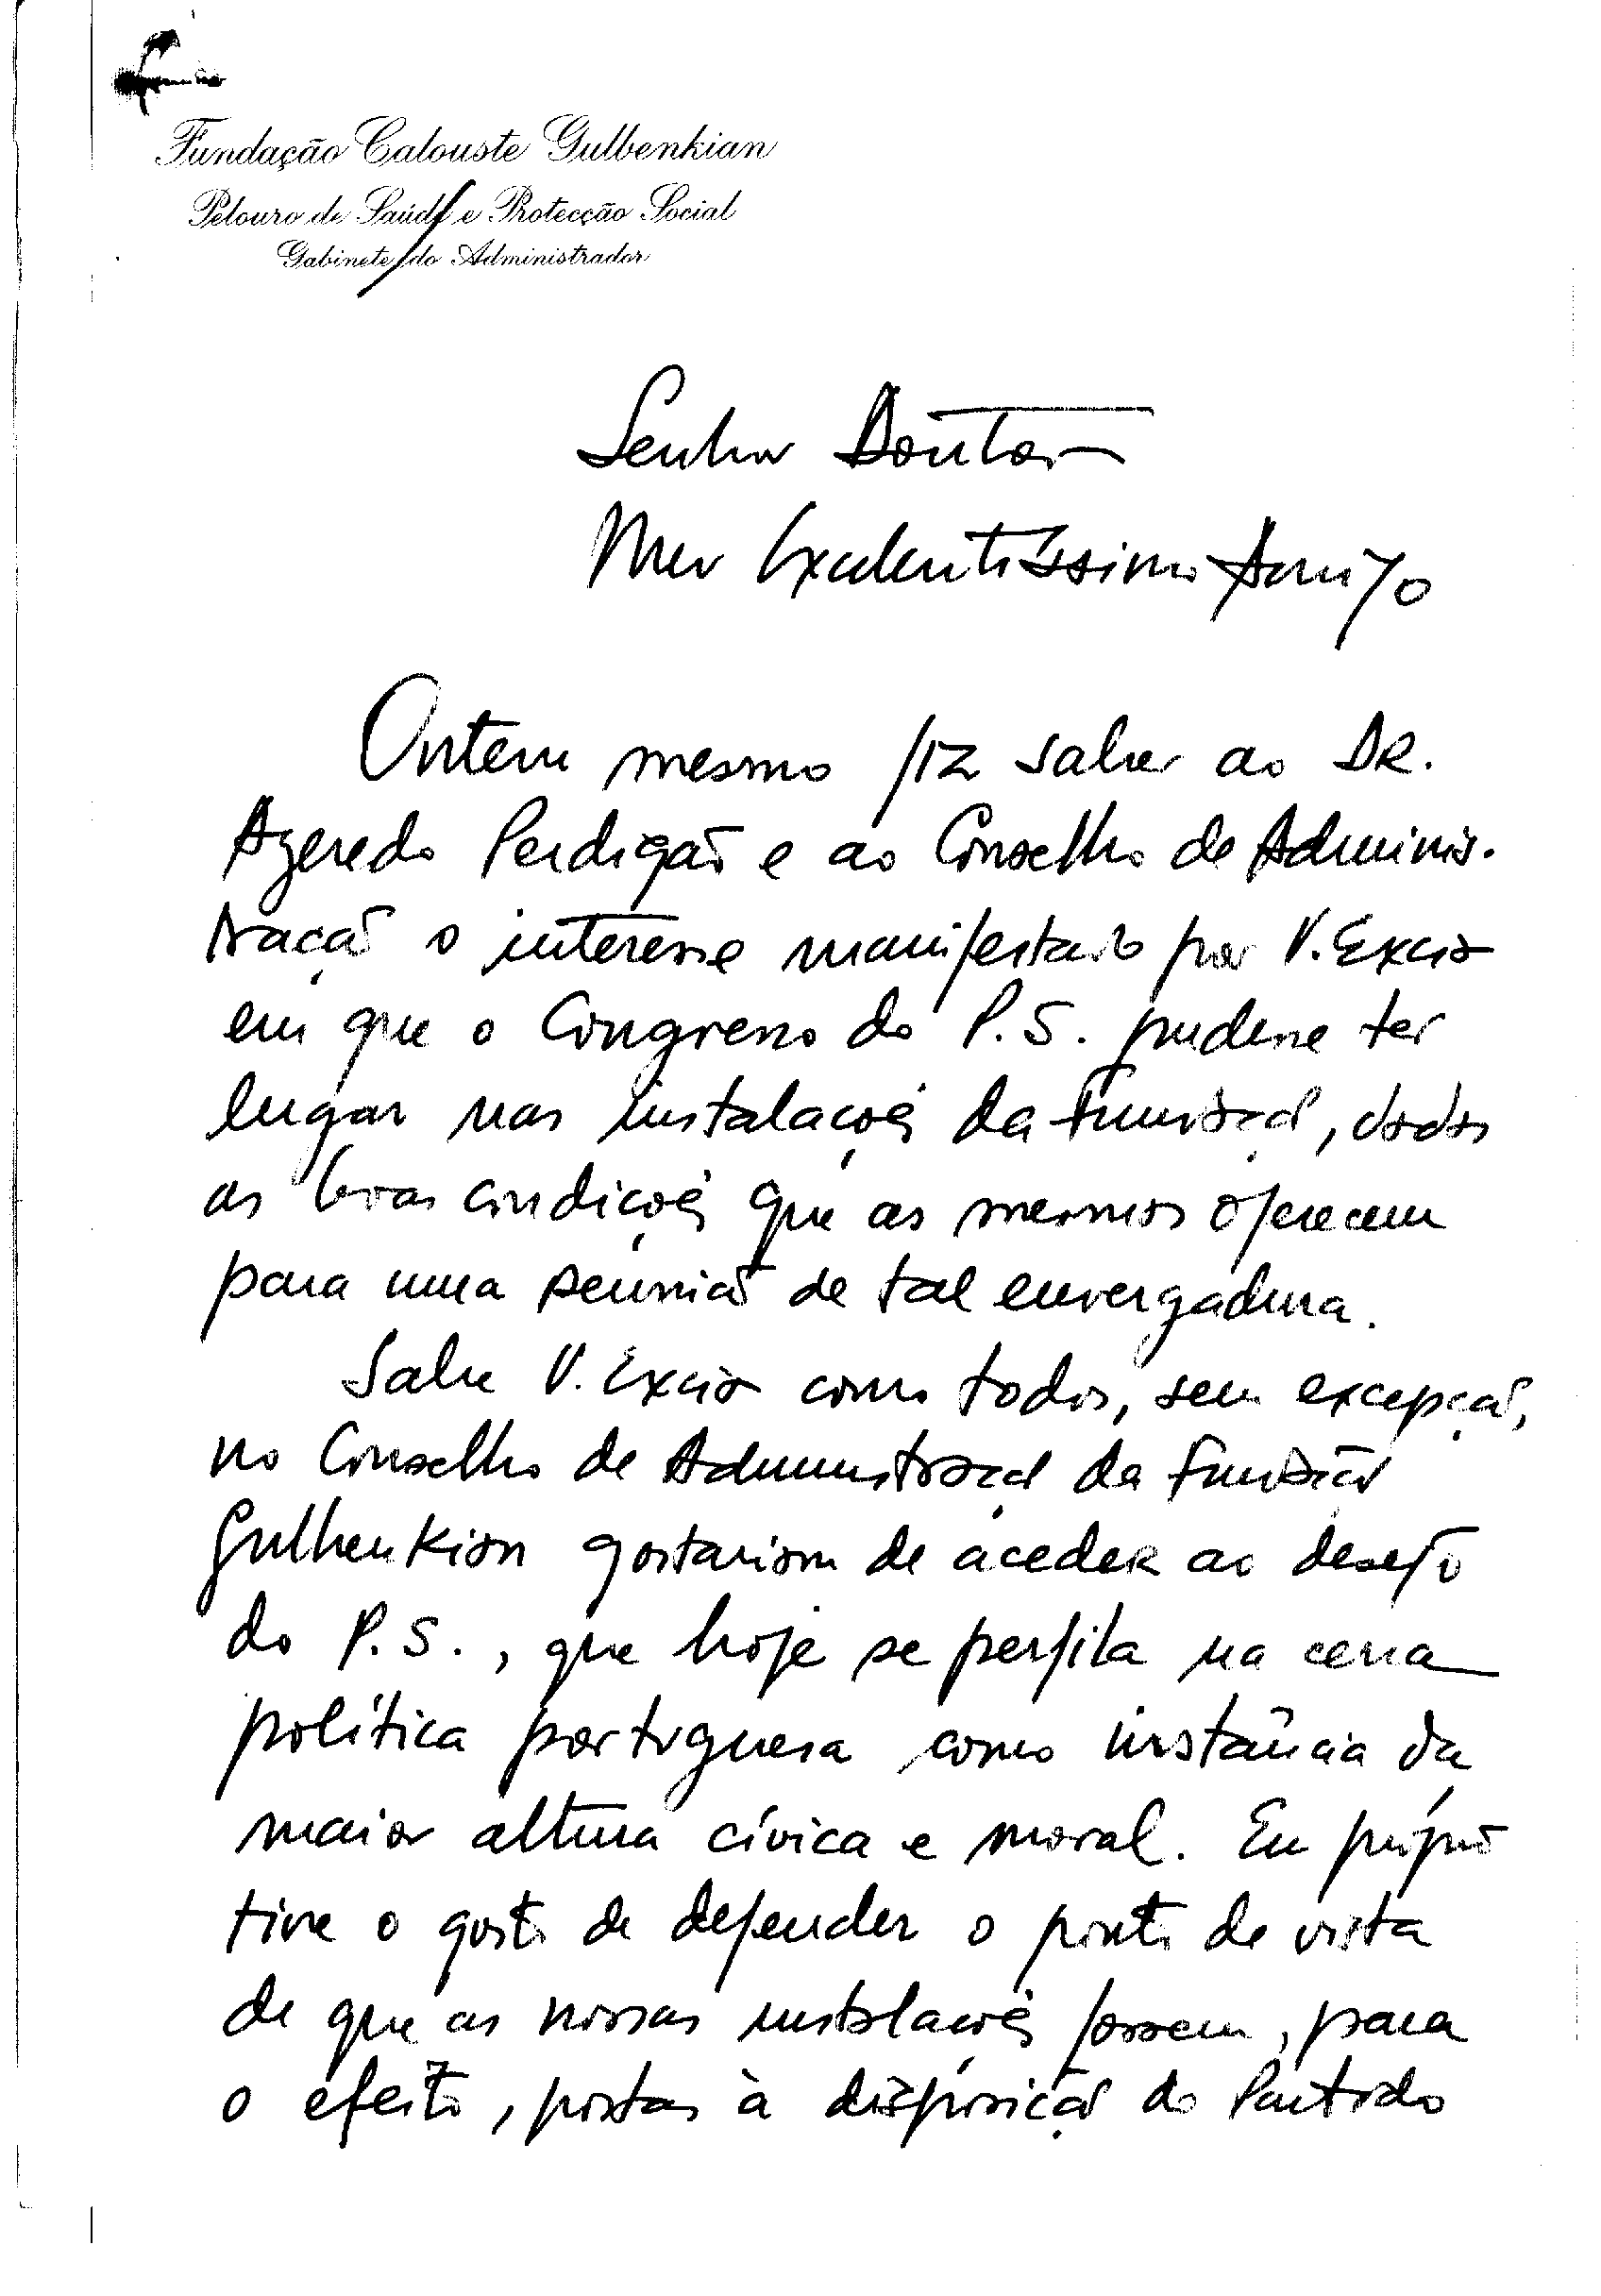 Fundação Calouste Gulbenkian
Pelouro de Saúde e Protecção Social
Gabinete do Administrador
Senhor Doutor
Meu Excelentíssimo Amigo
Ontem mesmo fiz saber ao DR.
Azeredo Perdigão e ao Conselho de Adminis-
tração o interesse manifestado por V. Excia
em que o Congresso do P.S. pudesse ter
lugar nas instalações da Fundação, dadas
as boas condições que as mesmas oferecem
para uma reunião de tal envergadura.
Sabe V. Excia como todos, sem excepção,
no Conselho de Administração da Fundação
Gulbenkian gostariam de aceder ao desejo
do P.S., que hoje se perfila na cena
política portuguesa como instância da
maior altura cívica e moral. Eu próprio
tive o gosto de defender o ponto de vista
de que as nossas instalações fossem, para
o efeito, postas à disposição do Partido